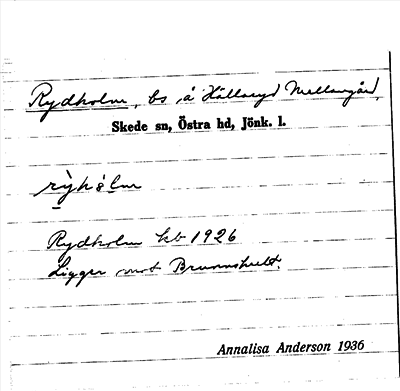 Rydholm, bs å Hållaryd Mellangård,
Skede sn, Östra hd, Jönk. l.
rỳhòlm
Rydholm kb 1926
Ligger mot Brunnshult.
Annalisa Anderson 1936